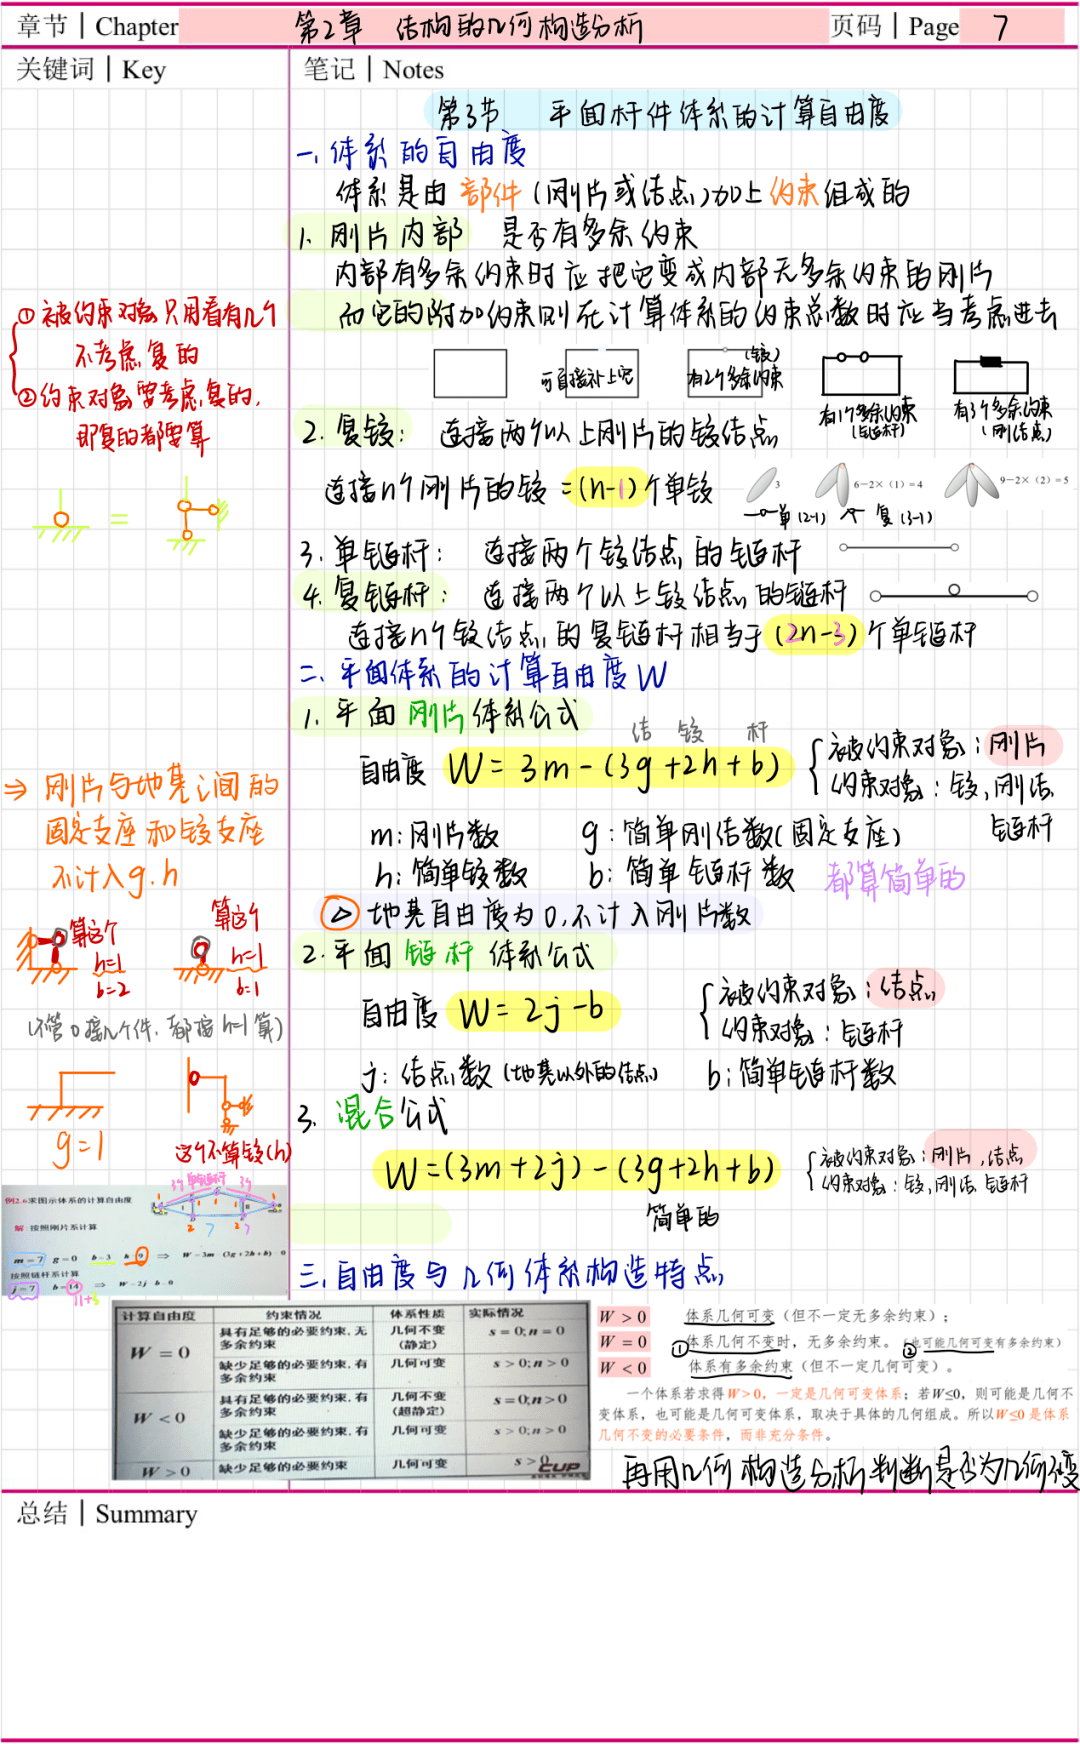 章节 | Chapter 第2章 结构的几何构造分析 页码 | Page 7
关键词 | Key 笔记 | Notes
第3节 平面杆件体系的计算自由度
一、体系的自由度
体系是由部件(刚片或结点)加上约束组成的
1. 刚片内部 是否有多余约束
内部有多余约束时应把它变成内部无多余约束的刚片
而它的附加约束则在计算体系的约束总数时应当考虑进去
可直接补上它
(铰)
有2个多余约束
有1个多余约束
(链杆)
有3个多余约束
(刚结点)
2. 复铰: 连接两个以上刚片的铰结点
连接n个刚片的铰=(n-1)个单铰
3
6-2×(1)=4
9-2×(2)=5
单(2-1) 复(3-1)
3. 单链杆: 连接两个铰结点的链杆
4. 复链杆: 连接两个以上铰结点的链杆
连接n个铰结点的复链杆相当于(2n-3)个单链杆
二、平面体系的计算自由度W
1. 平面刚片体系公式
结 铰 杆
自由度 W=3m-(3g+2h+b)
被约束对象:刚片
约束对象:铰,刚结
链杆
m:刚片数 g:简单刚结数(固定支座)
h:简单铰数 b:简单链杆数 都算简单的
地基自由度为0,不计入刚片数
2. 平面链杆体系公式
自由度 W=2j-b
被约束对象:结点
约束对象:链杆
j:结点数(地基以外的结点) b:简单链杆数
3. 混合公式
W=(3m+2j)-(3g+2h+b)
简单的
被约束对象:刚片,结点
约束对象:铰,刚结,链杆
三、自由度与几何体系构造特点
① 被约束对象只用看有几个
不考虑复的
② 约束对象要考虑复的,
即复的都要算
=
⇒ 刚片与地基之间的
固定支座和铰支座
不计入g.h
算这个
h=1
b=2
算这个
h=1
b=1
(不管0接几个件,都按h=1算)
g=1
这个不算铰(h)
例2.6求图示体系的计算自由度
解 按照刚片系计算
m=7 g=0 b=3 h=9 ⇒ W=3m-(3g+2h+b)=0
按照链杆系计算
j=7 b=14 ⇒ W=2j-b=0
11+3
计算自由度 约束情况 体系性质 实际情况
W = 0 具有足够的必要约束,无多余约束 几何不变(静定) s = 0; n = 0
缺少足够的必要约束,有多余约束 几何可变 s > 0; n > 0
W < 0 具有足够的必要约束,有多余约束 几何不变(超静定) s = 0; n > 0
缺少足够的必要约束,有多余约束 几何可变 s > 0; n > 0
W > 0 缺少足够的必要约束 几何可变 s > 0
CUP
W > 0 体系几何可变(但不一定无多余约束);
W = 0 ①体系几何不变时,无多余约束。②(也可能几何可变有多余约束)
W < 0 体系有多余约束(但不一定几何可变)。
一个体系若求得W>0,一定是几何可变体系;若W≤0,则可能是几何不
变体系,也可能是几何可变体系,取决于具体的几何组成。所以W≤0是体系
几何不变的必要条件,而非充分条件。
再用几何构造分析判断是否为几何不变
总结 | Summary